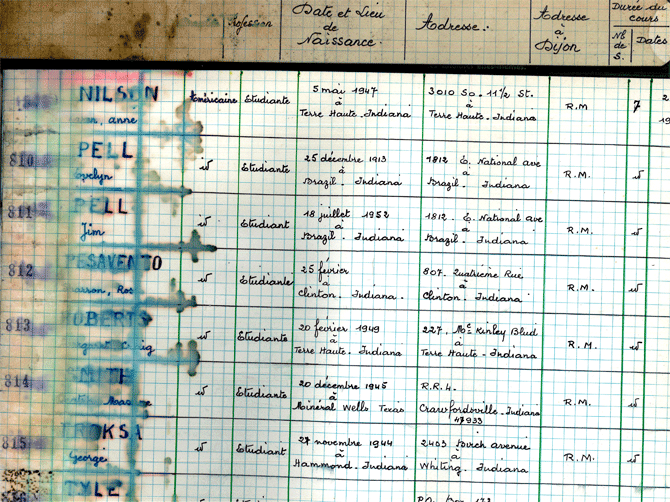 Profession
Date et Lieu
de
Naissance.
Adresse:
Adresse
à
Dijon
Durée du
cours
Nb
de
S.
Dates
NILSON
anne
Américaine
Etudiante
5 mai 1947
à
Terre Haute. Indiana
3010 So. 11 1/2 St.
à
Terre Haute. Indiana
R.M
7
810
PELL
id
Etudiante
25 décembre 1913
à
Brazil. Indiana
1812 E. National ave
à
Brazil. Indiana
R.M.
id
811
PELL
Jim
id
Etudiant
18 juillet 1952
à
Brazil. Indiana
1812. E. National Ave
à
Brazil. Indiana
R.M.
id
812
PESAVENTO
id
Etudiante
25 février
à
Clinton. Indiana.
807. Quatrième Rue
à
Clinton. Indiana
R.M.
id
813
ROBERTS
id
Etudiante
20 février 1949
à
Terre Haute. Indiana
227. Mc Kinley Blud
à
Terre Haute - Indiana
R.M.
id
814
SMITH
id
Etudiante
20 décembre 1945
à
Minéral Wells Texas
R.R.4.
à
Crawfordsville. Indiana
47933
R.M.
id
815
TROKSA
George
id
Etudiant
27 novembre 1944
à
Hammond. Indiana
2403 Birch avenue
à
Whiting. Indiana
R.M.
id